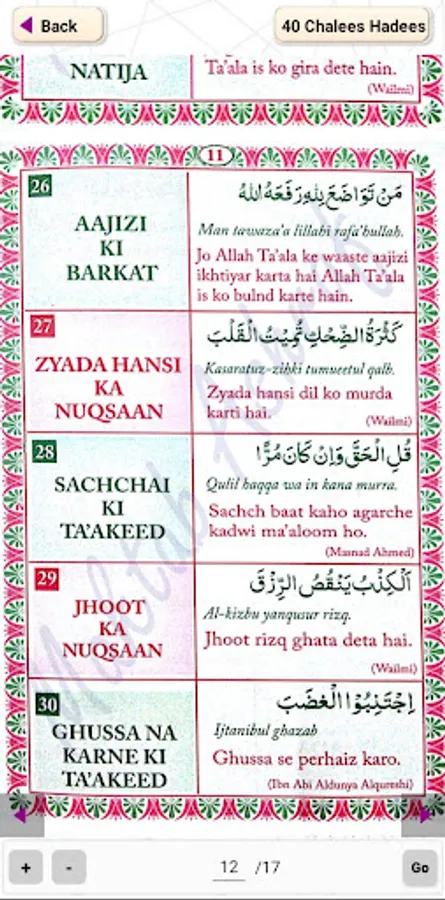 Back
40 Chalees Hadees
NATIJA
Ta'ala is ko gira dete hain.
(Wailmi)
11
26
AAJIZI
KI
BARKAT
مَنْ تَوَاضَعَ لِلّٰهِ رَفَعَهُ اللّٰهُ
Man tawaza'a lillahi rafa'hullah.
Jo Allah Ta'ala ke waaste aajizi
ikhtiyar karta hai Allah Ta'ala
is ko bulnd karte hain.
27
ZYADA HANSI
KA
NUQSAAN
كَثْرَةُ الضِّحْكِ تُمِيْتُ الْقَلْبَ
Kasaratuz-zihki tumueetul qalb.
Zyada hansi dil ko murda
karti hai.
(Wailmi)
28
SACHCHAI
KI
TA'AKEED
قُلِ الْحَقَّ وَاِنْ كَانَ مُرًّا
Qulil haqqa wa in kana murra.
Sachch baat kaho agarche
kadwi ma'aloom ho.
(Masnad Ahmed)
29
JHOOT
KA
NUQSAAN
اَلْكِذْبُ يَنْقُصُ الرِّزْقَ
Al-kizbu yanqusur rizq.
Jhoot rizq ghata deta hai.
(Wailmi)
30
GHUSSA NA
KARNE KI
TA'AKEED
اِجْتَنِبُوْا الْغَضَبَ
Ijtanibul ghazab
Ghussa se perhaiz karo.
(Ibn Abi Aldunya Alqureshi)
+
-
12 /17
Go